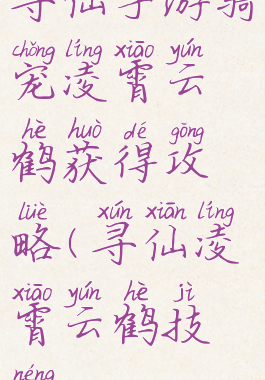 寻仙手游骑
chǒng líng xiāo yún
宠凌霄云
hè huò dé gōng
鹤获得攻
lüè xún xiān líng
略(寻仙凌
xiāo yún hè jì
霄云鹤技
néng